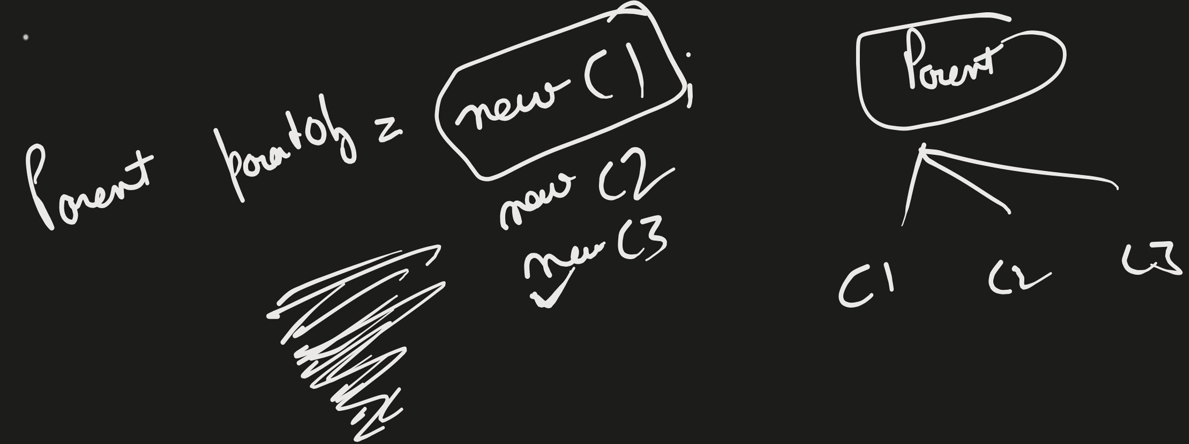 Parent parentObj = new C1;
new C2
new C3
Parent
C1 C2 C3